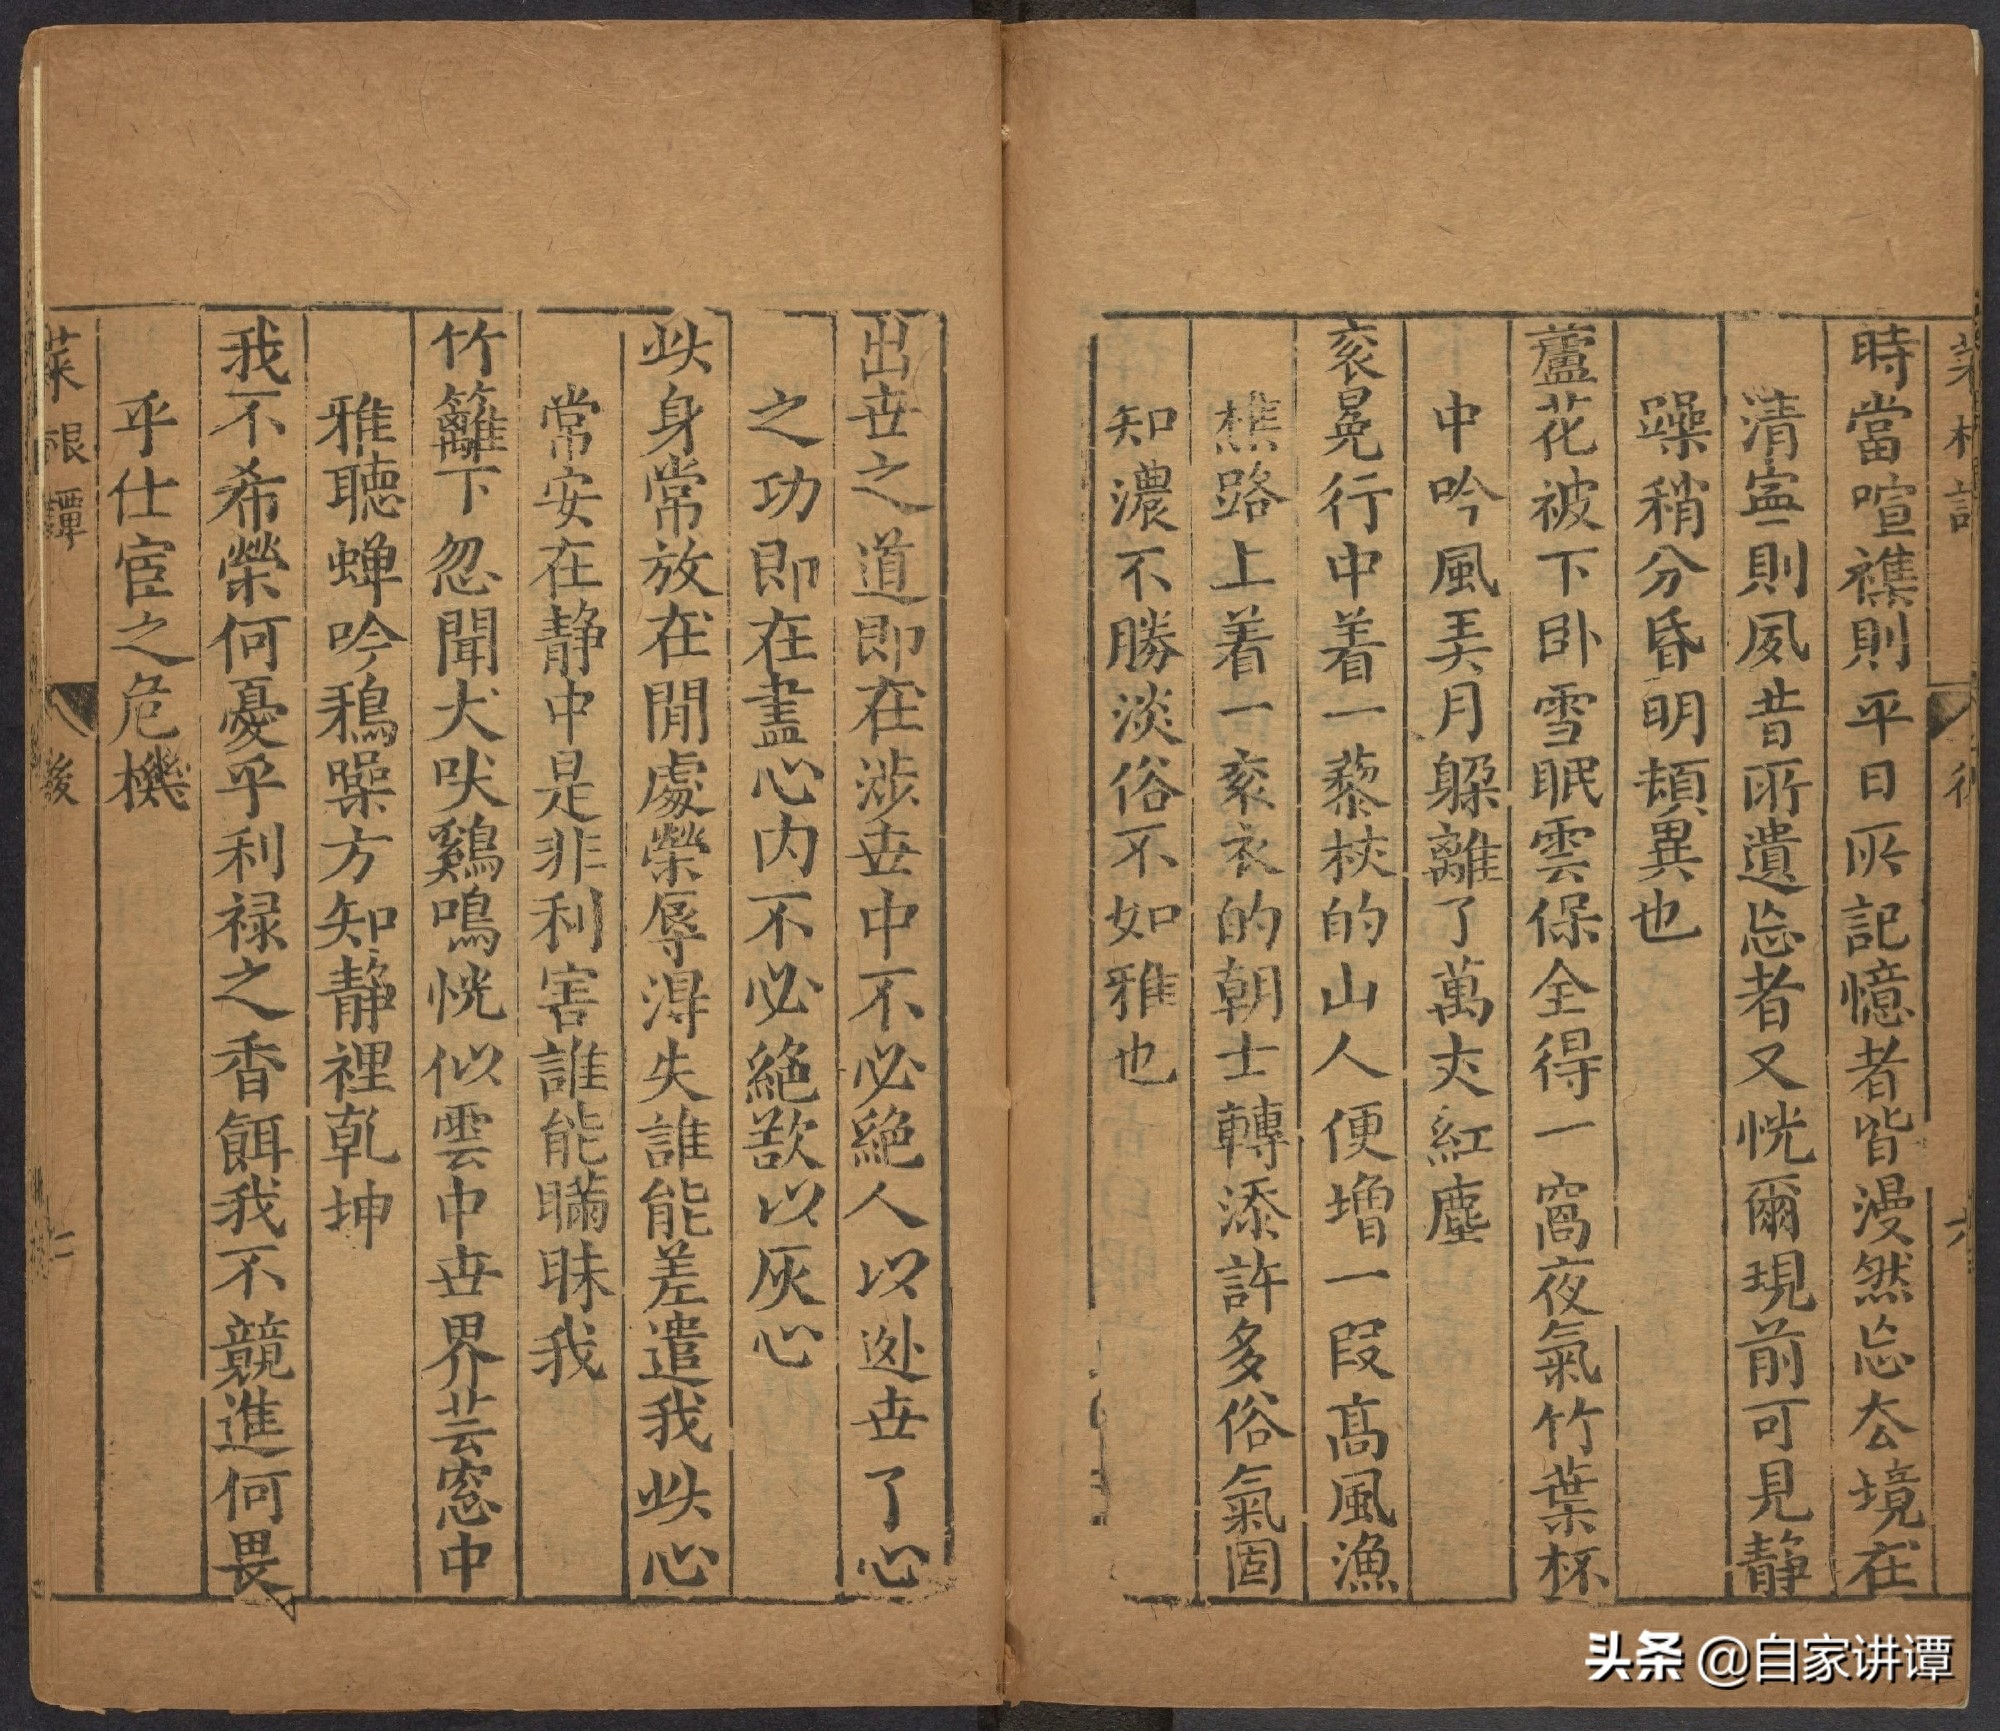 時當喧襍則平日所記憶者皆漫然忘厺境在
清寧則夙昔所遺忘者又恍爾現前可見静
躁稍分昏明頓異也
蘆花被下卧雪眠雲保全得一窩夜氣竹葉杯
中吟風美月躲離了萬丈紅塵
衮冕行中着一藜杖的山人便增一叚高風漁
樵路上着一衮衣的朝士轉添許多俗氣固
知濃不勝淡俗不如雅也
出丗之道即在渉丗中不必絶人以逃丗了心
之功即在盡心内不必絶欲以灰心
此身常放在閒處榮辱淂失誰能差遣我此心
常安在静中是非利害誰能瞞昧我
竹籬下忽聞犬吠鷄鳴恍似雲中丗界芸窓中
雅聴蝉吟鵶噪方知静裡乾坤
我不希榮何憂乎利禄之香餌我不競進何畏
乎仕宦之危機
菜根譚
後
头条 @自家讲谭